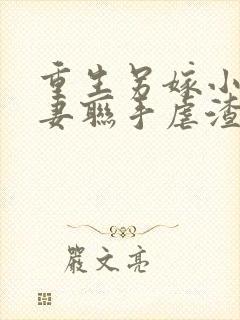 重生另嫁小
妻聯手虐渣
嚴文亮